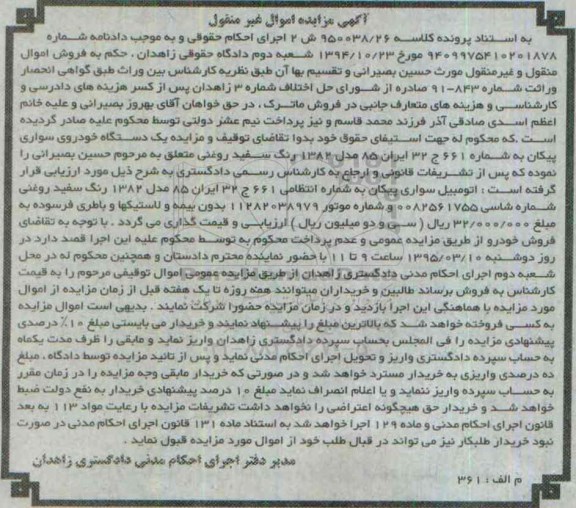 آگهی مزایده اموال غیر منقول
به استناد پرونده کلاسه ۹۵۰۰۳۸/۲۶ ش ۲ اجرای احکام حقوقی و به موجب دادنامه شماره
۹۴۰۹۹۷۵۴۱۰۲۰۱۸۷۸ مورخ ۱۳۹۴/۱۰/۲۳ شعبه دوم دادگاه حقوقی زاهدان ، حکم به فروش اموال
منقول و غیرمنقول مورث حسین بصیرانی و تقسیم بها آن طبق نظریه کارشناس بین وراث طبق گواهی انحصار
وراثت شماره ۸۴۳-۹۱ صادره از شورای حل اختلاف شماره ۳ زاهدان پس از کسر هزینه های دادرسی و
کارشناسی و هزینه های متعارف جانبی در فروش ماترک ، در حق خواهان آقای بهروز بصیرانی و علیه خانم
اعظم اسدی صادقی آذر فرزند محمد قاسم و نیز پرداخت نیم عشر دولتی توسط محکوم علیه صادر گردیده
است .که محکوم له جهت استیفای حقوق خود بدوا تقاضای توقیف و مزایده یک دستگاه خودروی سواری
پیکان به شماره ۶۶۱ ج ۳۲ ایران ۸۵ مدل ۱۳۸۲ رنگ سفید روغنی متعلق به مرحوم حسین بصیرانی را
نموده که پس از تشریفات قانونی و ارجاع به کارشناس رسمی دادگستری به شرح ذیل مورد ارزیابی قرار
گرفته است : اتومبیل سواری پیکان به شماره انتظامی ۶۶۱ ج ۳۲ ایران ۸۵ مدل ۱۳۸۲ رنگ سفید روغنی
شماره شاسی ۰۰۸۲۵۶۱۷۵۵ و شماره موتور ۱۱۲۸۲۰۳۸۹۷۹ بدون بیمه و لاستیکها و باطری فرسوده به
مبلغ ۳۲/۰۰۰/۰۰۰ ریال ( سی و دو میلیون ریال ) ارزیابی و قیمت گذاری می گردد . با توجه به تقاضای
فروش خودرو از طریق مزایده عمومی و عدم پرداخت محکوم به توسط محکوم علیه این اجرا قصد دارد در
روز دوشنبه ۱۳۹۵/۰۳/۱۰ ساعت ۹ تا ۱۱ با حضور نماینده محترم دادستان و همچنین محکوم له در محل
شعبه دوم اجرای احکام مدنی دادگستری زاهدان از طریق مزایده عمومی اموال توقیفی مرحوم را به قیمت
کارشناس به فروش برساند طالبین و خریداران میتوانند همه روزه تا یک هفته قبل از زمان مزایده از اموال
مورد مزایده با هماهنگی این اجرا بازدید و در زمان مزایده حضورا شرکت نمایند . بدیهی است اموال مزایده
به کسی فروخته خواهد شد که بالاترین مبلغ را پیشنهاد نمایند و خریدار می بایستی مبلغ ۱۰٪ درصدی
پیشنهادی مزایده را فی المجلس بحساب سپرده دادگستری زاهدان واریز نماید و مابقی را ظرف مدت یکماه
به حساب سپرده دادگستری واریز و تحویل اجرای احکام مدنی نماید و پس از تائید مزایده توسط دادگاه ، مبلغ
ده درصدی واریزی به خریدار مسترد خواهد شد و در صورتی که خریدار مابقی وجه مزایده را در زمان مقرر
به حساب سپرده واریز ننماید و یا اعلام انصراف نماید مبلغ ۱۰ درصد پیشنهادی خریدار به نفع دولت ضبط
خواهد شد و خریدار حق هیچگونه اعتراضی را نخواهد داشت تشریفات مزایده با رعایت مواد ۱۱۳ به بعد
قانون اجرای احکام مدنی و ماده ۱۲۹ اجرا خواهد شد به استناد ماده ۱۳۱ قانون اجرای احکام مدنی در صورت
نبود خریدار طلبکار نیز می تواند در قبال طلب خود از اموال مورد مزایده قبول نماید .
مدیر دفتر اجرای احکام مدنی دادگستری زاهدان
م الف : ۳۶۱